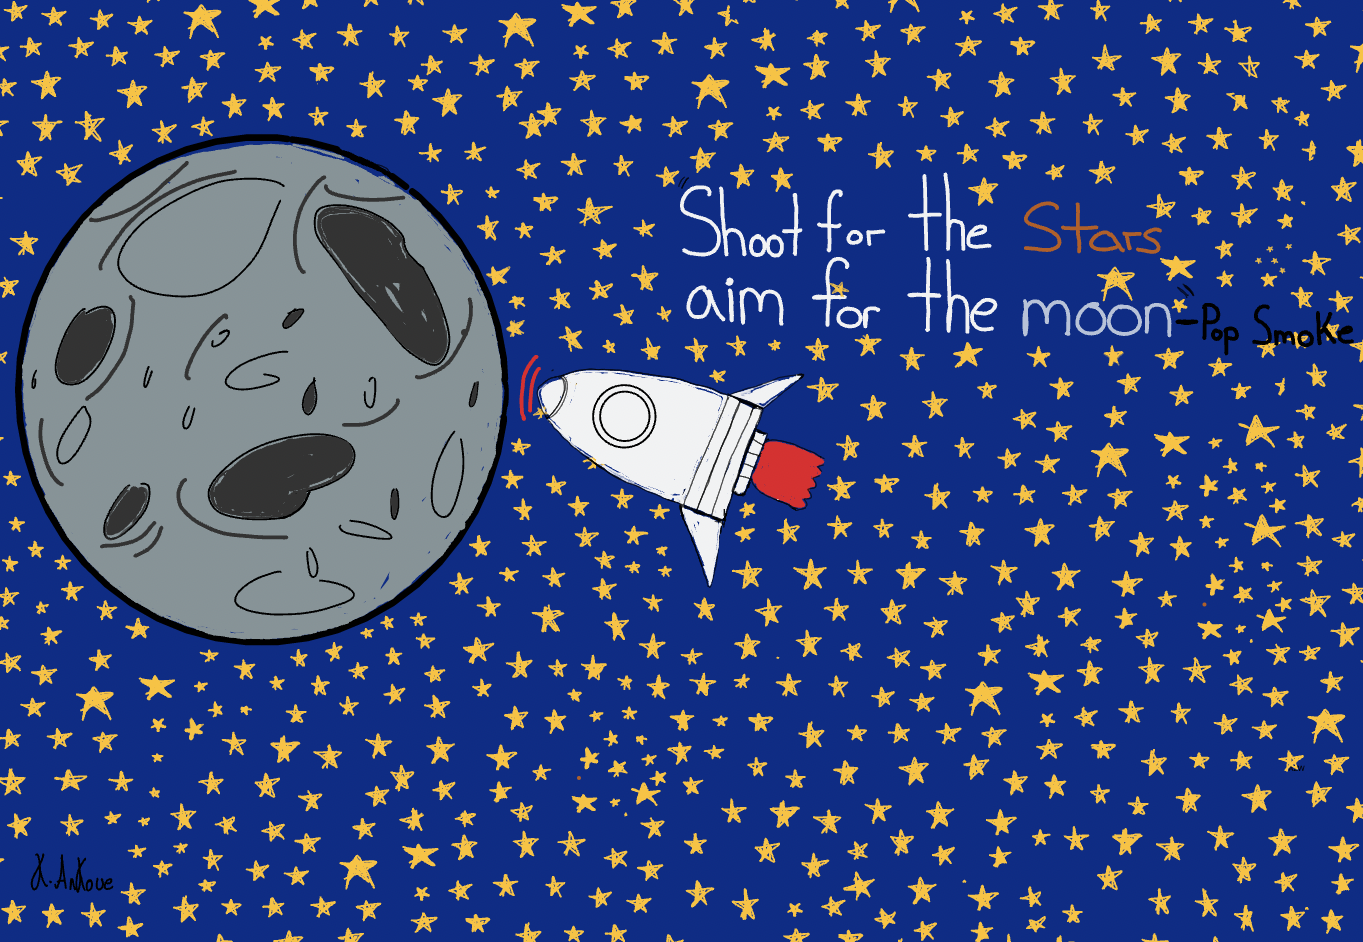 "Shoot for the Stars
aim for the moon" -Pop Smoke